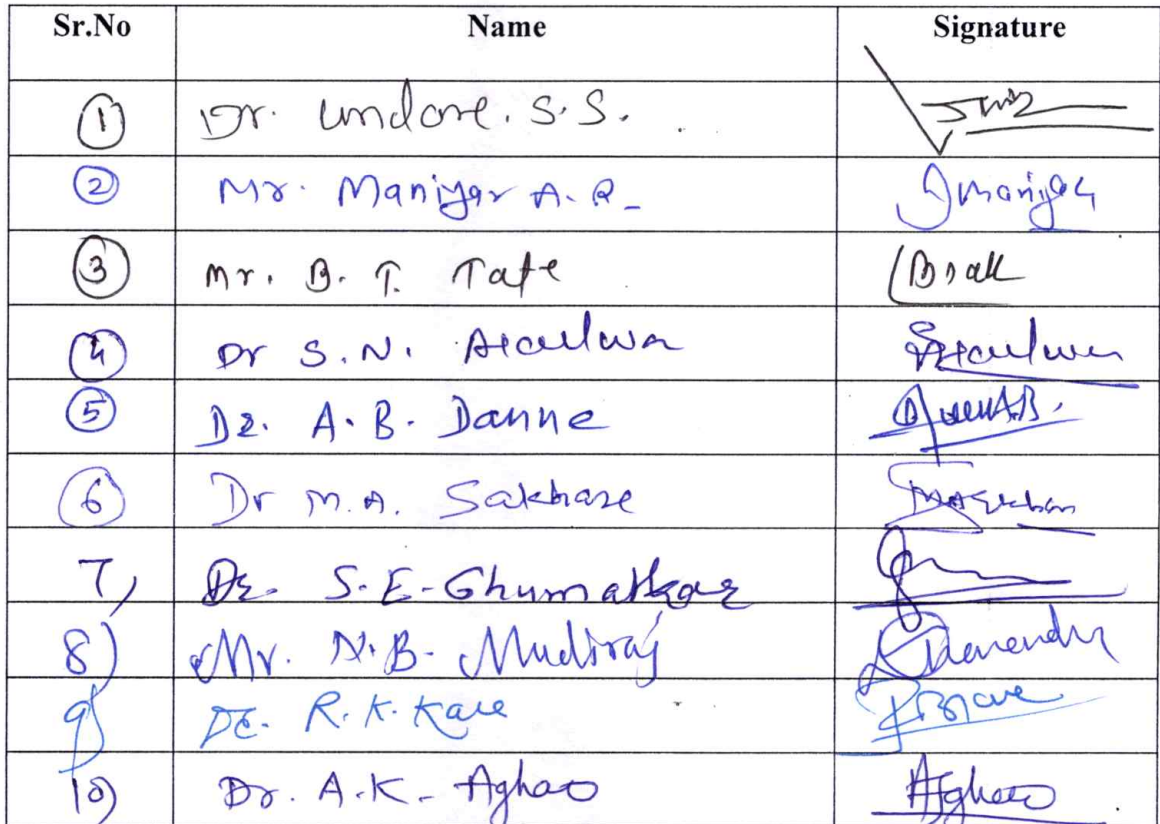 Sr.No Name Signature
1 Dr. Undare. S.S.
2 Mr. Maniyar A.R. Maniyar
3 Mr. B. T. Tate
4 Dr S.N.
5 Dr. A.B. Danne
6 Dr M.A. Sakhare
7) Dr. S.E. Ghumatkar
8) Mr. N.B. Mudiraj
9) Dr. R.K. Kale
10) Dr. A.K. Aghao Aghao